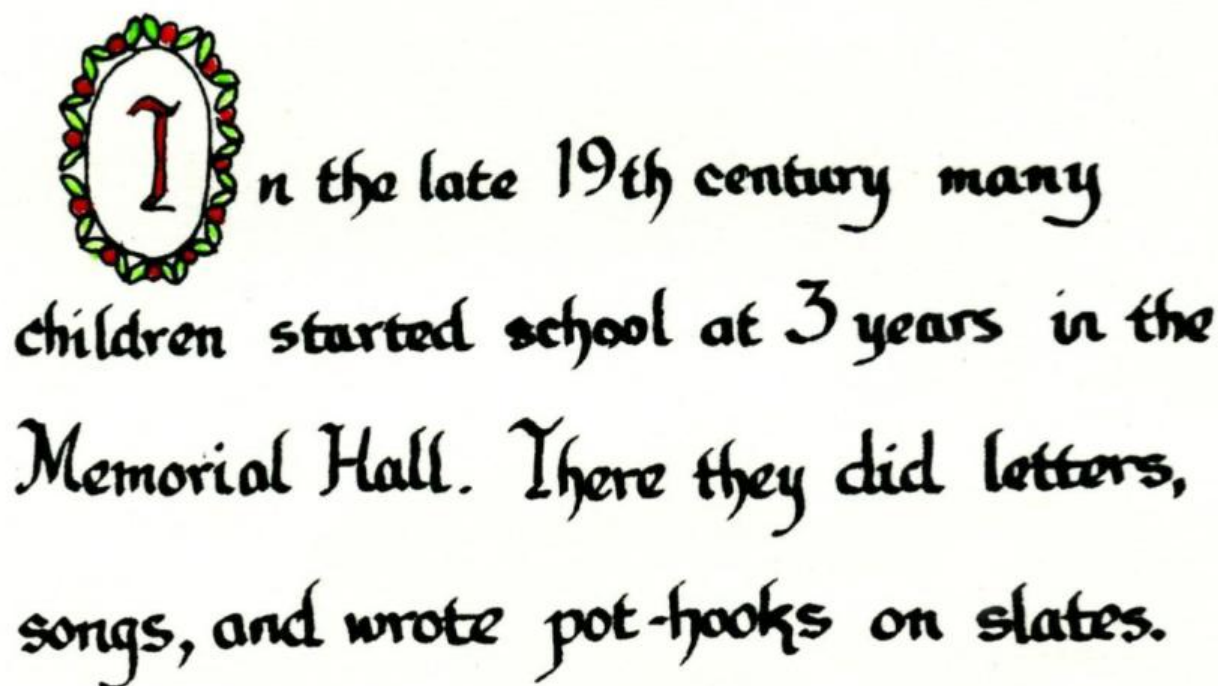 In the late 19th century many
children started school at 3 years in the
Memorial Hall. There they did letters,
songs, and wrote pot-hooks on slates.